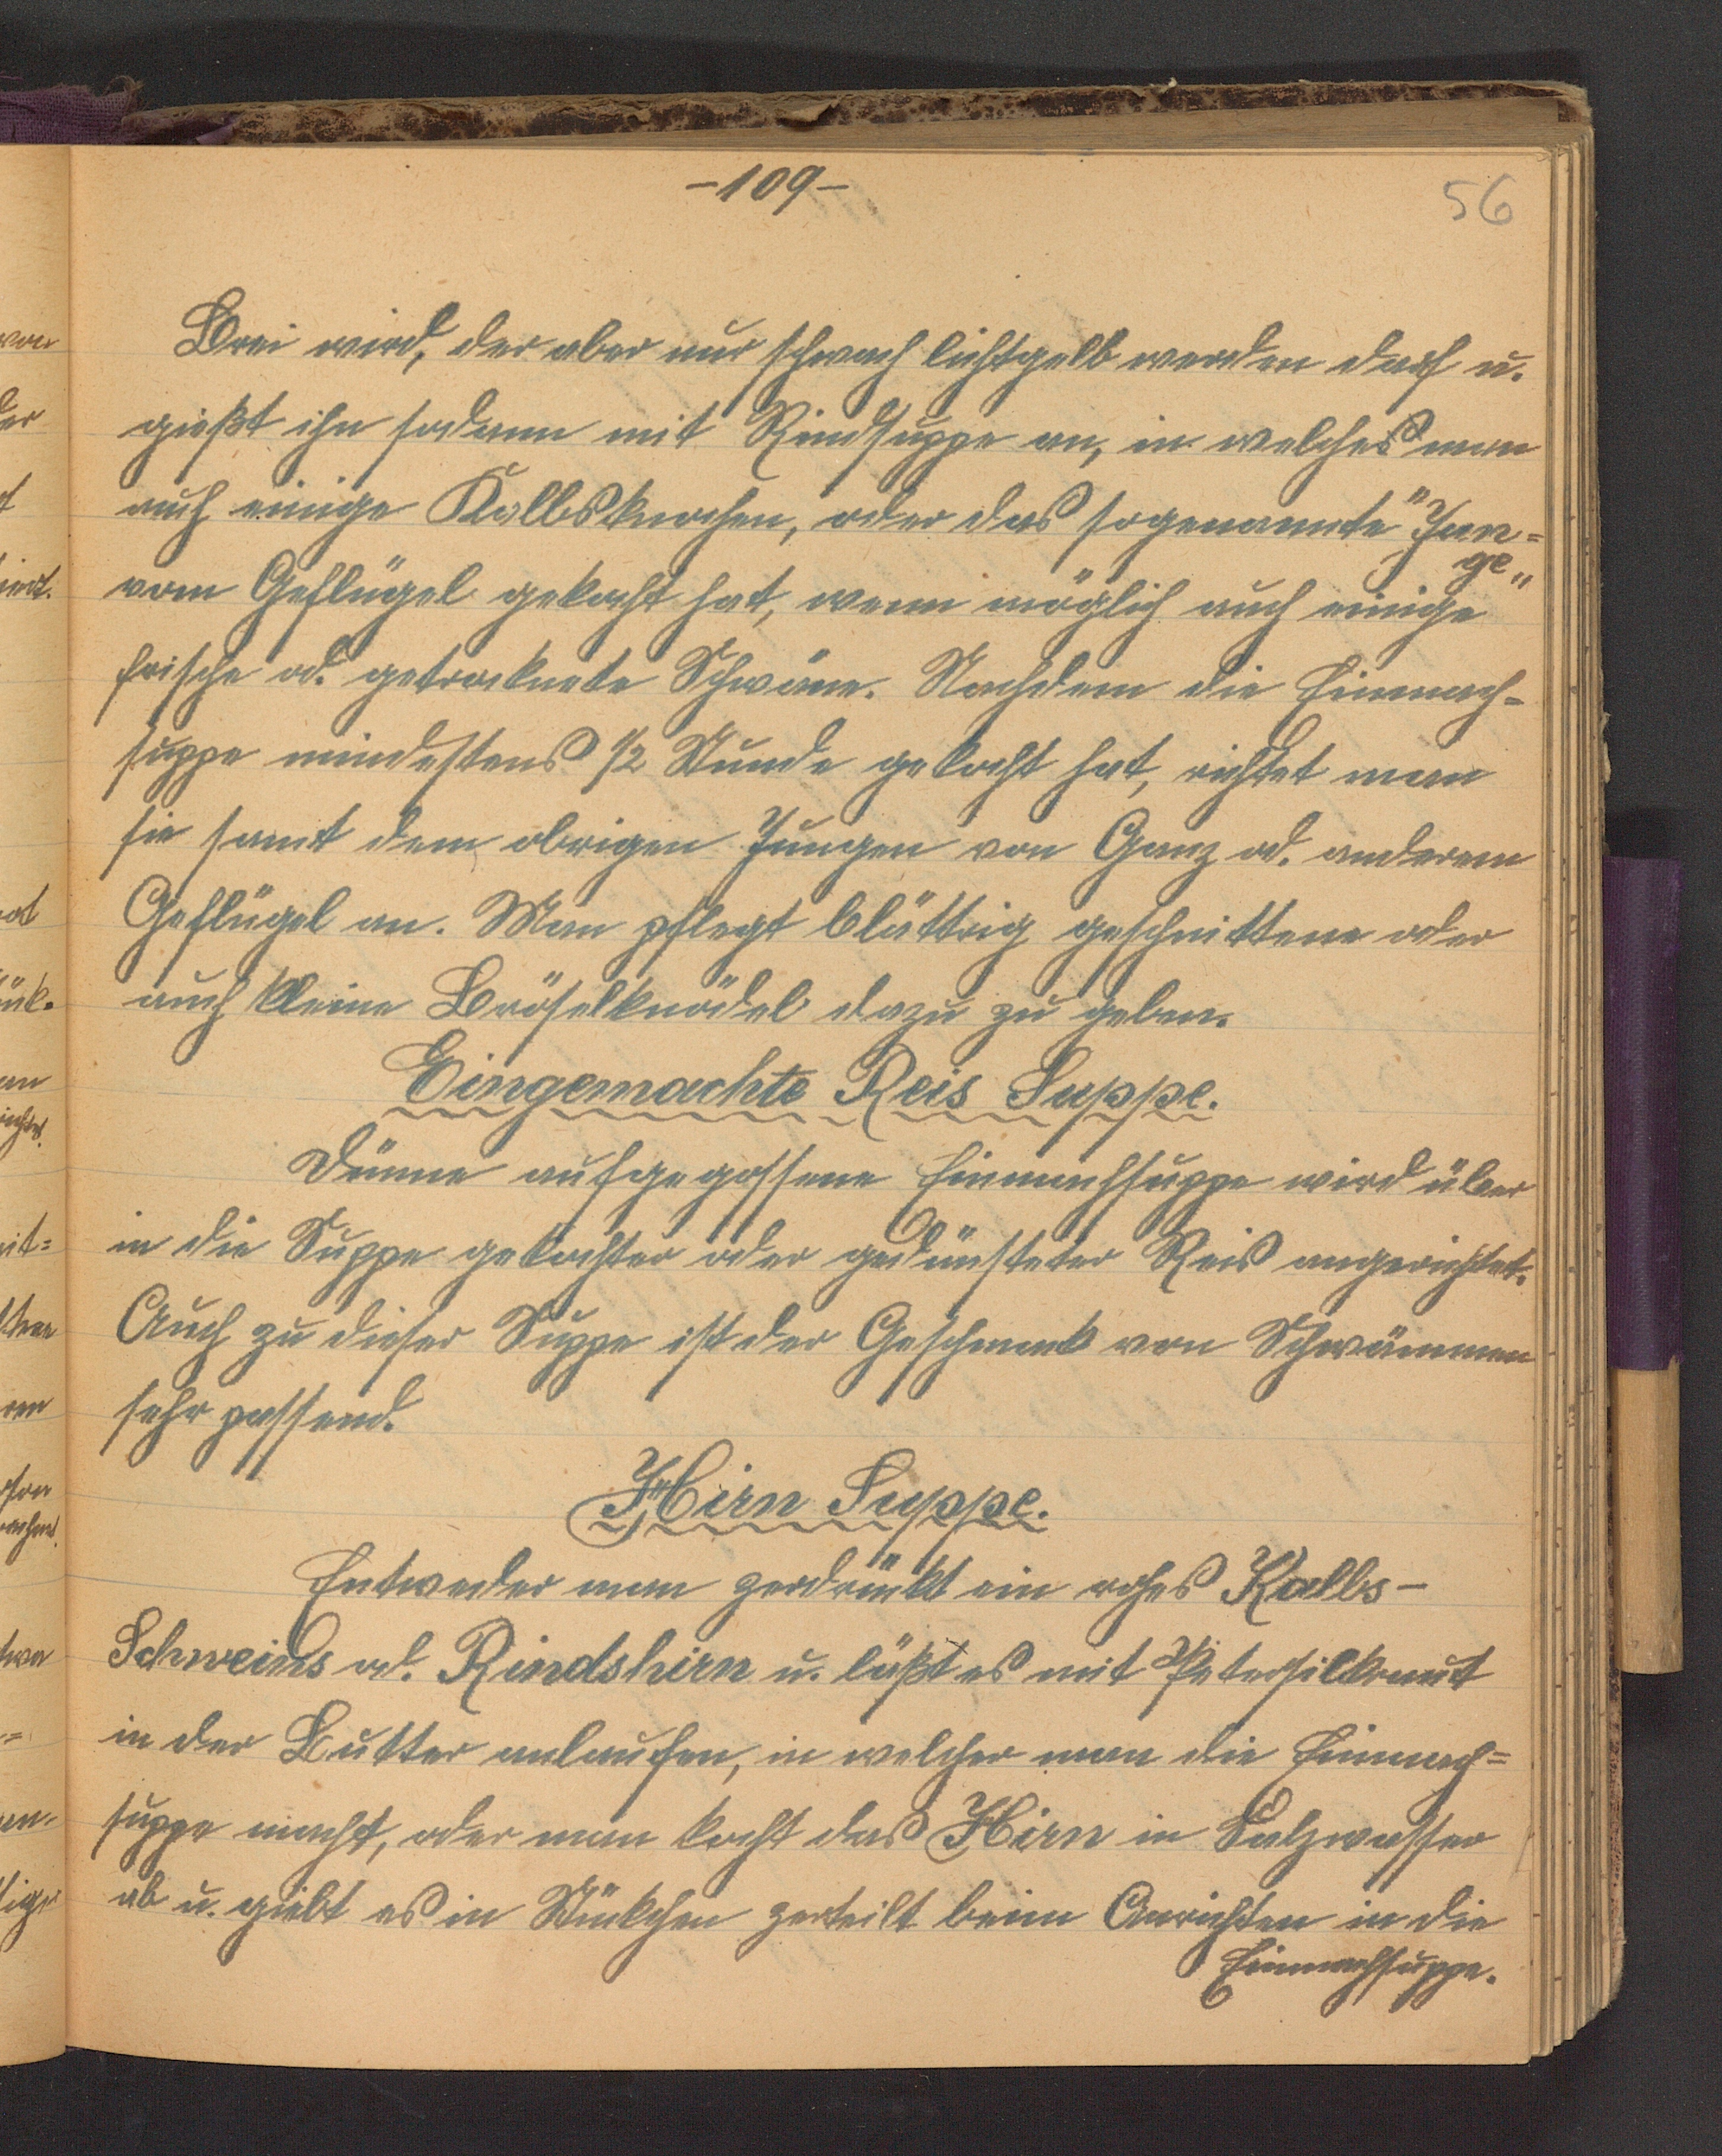 -109-
56
Brei wird, der aber nur schwach lichtgelb werden darf u.
gießt ihn sodann mit Rindsuppe an, in welches man
auch einige Kalbsknochen, oder das sogenannte "Jun=
ge"
vom Geflügel gekocht hat, wenn möglich auch einige
frische od. getrocknete Schwäme. Nachdem die Einmach=
suppe mindestens 1/2 Stunde gekocht hat, richtet man
sie samt dem obrigen Jungen von Ganz od. anderem
Geflügel an. Man pflegt blättrig geschnittene oder
auch kleine Bröselknödel dazu zu geben.
Eingemachte Reis Suppe.
Dünne aufgegossene Einmachsuppe wird über
in die Suppe gekochter oder gedünsteter Reis angerichtet.
Auch zu dieser Suppe ist der Geschmack von Schwämmen
sehr passend.
Hirn Suppe.
Entweder man zerdrückt ein rohes Kalbs-
Schweins od. Rindshirn u. läßt es mit Petersilkraut
in der Butter anlaufen, in welcher man die Einmach=
suppe macht, oder man kocht das Hirn in Salzwasser
ab u. giebt es in Stückchen zerteilt beim Anrichten in die
Einmachsuppe.